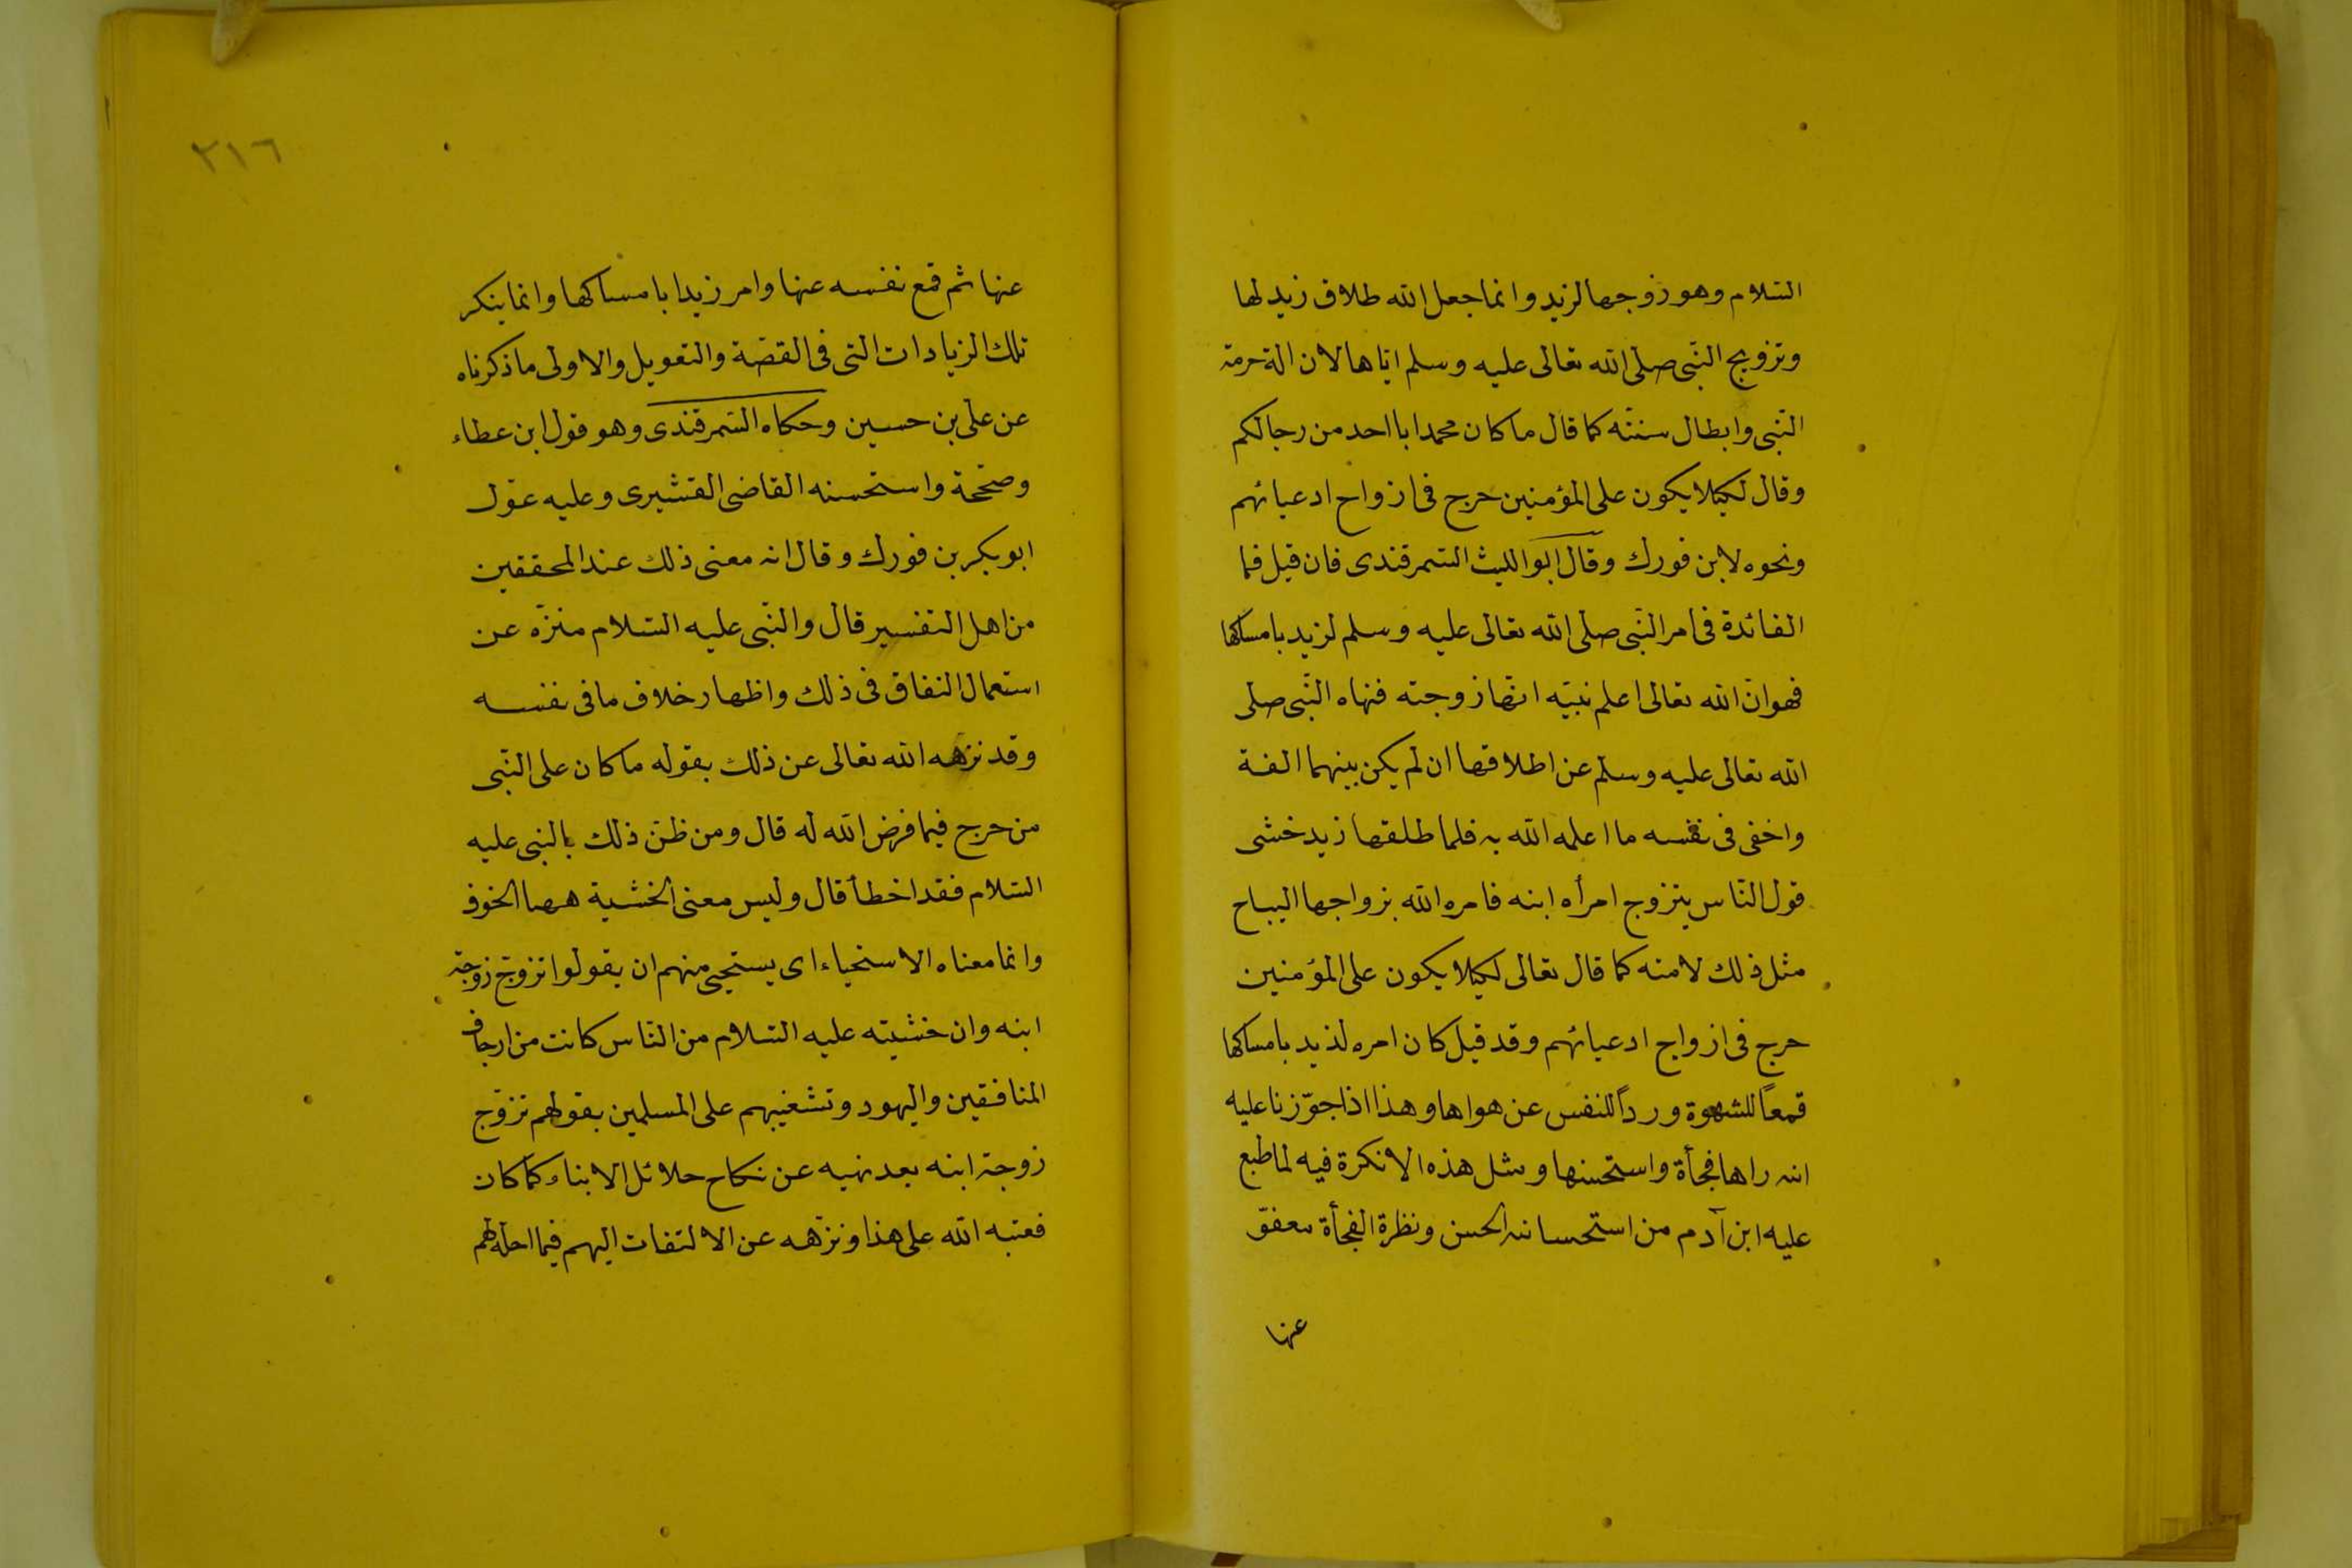 السّلام وهو زوجها لزيد وانما جعل الله طلاق زيد لها
وتزويج النّبى صلى الله تعالى عليه وسلم اياها لازالة حرمة
النّبى وابطال سنته كما قال ما كان محمد ابا احد من رجالكم
وقال لكيلا يكون على المؤمنين حرج فى ازواج ادعيائهم
ونحوه لابن فورك وقال ابو الليث السّمرقندى فان قيل فما
الفائدة فى امر النّبى صلى الله تعالى عليه وسلم لزيد بامساكها
فهو انّ الله تعالى اعلم نبيّه انّها زوجته فنهاه النّبى صلى
الله تعالى عليه وسلم عن اطلاقها ان لم يكن بينهما الفة
واخفى فى نفسه ما اعلمه الله به فلما طلقها زيد خشى
قول النّاس يتزوج امرأه ابنه فامره الله بزواجها اليباح
مثل ذلك لامته كما قال تعالى لكيلا يكون على المؤمنين
حرج فى ازواج ادعيائهم وقد قيل كان امره لذيد بامساكها
قمعاً للشهوة ورداً للنفس عن هواها وهذا اذا جوّزنا عليه
انه راها فجأة واستحسنها ومثل هذه الانكرة فيه لما طبع
عليه ابن آدم من استحسانه الحسن ونظرة الفجأة معفوّ
عنها
٣١٦
عنها ثم قمع نفسه عنها وامر زيدا بامساكها وانما ينكر
تلك الزيادات التى فى القصّة والتعويل والاولى ما ذكرناه
عن على بن حسين وحكاه السّمرقندى وهو قول ابن عطاء
وصحّحة واستحسنه القاضى القشيرى وعليه عوّل
ابو بكر بن فورك وقال انه معنى ذلك عند المحققين
من اهل التفسير قال والنّبى عليه السّلام منزّه عن
استعمال النفاق فى ذلك واظهار خلاف ما فى نفسه
وقد نزهه الله تعالى عن ذلك بقوله ما كان على النّبى
من حرج فيما فرض الله له قال ومن ظنّ ذلك بالنبى عليه
السّلام فقد اخطأ قال وليس معنى الخشية ههنا الخوف
وانما معناه الاستحياء اى يستحيى منهم ان يقولوا تزوّج زوجة
ابنه وان خشيته عليه السّلام من النّاس كانت من ارجاف
المنافقين واليهود وتشغيبهم على المسلمين بقولهم تزوّج
زوجة ابنه بعد نهيه عن نكاح حلائل الابناء كما كان
فعتبه الله على هذا ونزّهه عن الالتفات اليهم فيما احله لهم